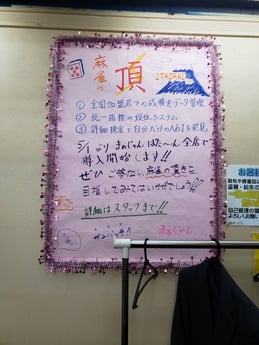 麻雀の
頂
ITADAKI
① 全国加盟店での成績をデータ管理
② 統一規模の段位システム
③ 詳細検索で自分だけのNo1を発見
5/1より まぁじゃん ぱたーん 全店で
導入開始します!!
ぜひ ご参加し、麻雀の頂きを
目指してみてはいかがでしょう!!
詳細はスタッフまで!!
ガンバッテ!!
まぁじゃん